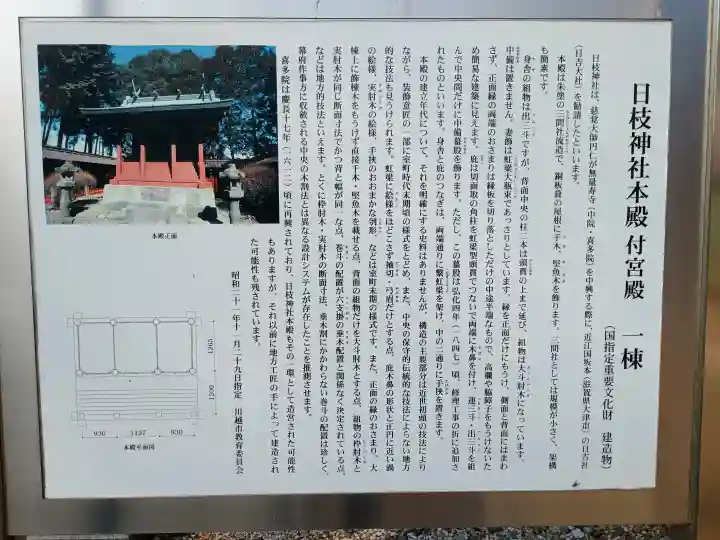 日枝神社本殿 付宮殿 一棟
（国指定重要文化財 建造物）
日枝神社は、慈覚大師円仁が無量寿寺（中院・喜多院）を中興する際に、近江国坂本（滋賀県大津市）の日吉社
（日吉大社）を勧請したといいます。
本殿は朱塗の三間社流造で、銅板葺の屋根に千木、堅魚木を飾ります。三間社としては規模が小さく、架構
も簡素です。
身舎の組物は出三斗ですが、背面中央の柱二本は頭貫の上まで延び、組物は大斗肘木になっています。
中備は置きません。妻飾は虹梁大瓶束であっさりとしています。縁を正面だけにもうけ、側面と背面にはまわ
さず、正面縁の両端のおさまりは縁板を切り落としただけの中途半端なもので、高欄や脇障子をもうけないた
め簡易な建築に見えます。庇は切面取の角柱を虹梁型頭貫でつないで両端に木鼻を付け、連三斗・出三斗を組
んで中央間だけに中備蟇股を飾ります。ただし、この蟇股は弘化四年（一八四七）頃、修理工事の折に追加さ
れたものといいます。身舎と庇のつなぎは、両端通りに繋虹梁を架け、中の二通りに手挟を置きます。
本殿の建立年代について、それを明確にする史料はありませんが、構造の主要部分は近世初頭の技法により
ながら、装飾意匠の一部に室町時代末期頃の様式をとどめ、また、中央の保守的伝統的な技法によらない地方
的な技法も見うけられます。虹梁に絵様をほどこさず袖切・弓眉だけとする点、庇木鼻の形状と正円に近い渦
の絵様、実肘木の絵様、手挟のおおまかな刳形、などは室町末期の様式です。また、正面の縁のおさまり、大
棟上に飾棟木をもうけず直接千木・堅魚木を載せる点、背面の組物だけを大斗肘木とする点、組物の枠肘木と
実肘木が同じ断面寸法でかつ背と幅が同一な点、巻斗の配置が六支掛の垂木配置と関係なく決定されている点、
などは地方的技法といえます。とくに枠肘木・実肘木の断面寸法、垂木割にかかわらない巻斗の配置は珍しく、
幕府作事方に収斂される中央の木割法とは異なる設計システムが存在したことを推測させます。
喜多院は慶長十七年（一六一二）頃に再興されており、日枝神社本殿もその一環として造営された可能性
もありますが、それ以前に地方工匠の手によって建造され
た可能性も残されています。
昭和二十一年十一月二十九日指定 川越市教育委員会
本殿正面
1365
1200
930 1137 930
本殿平面図